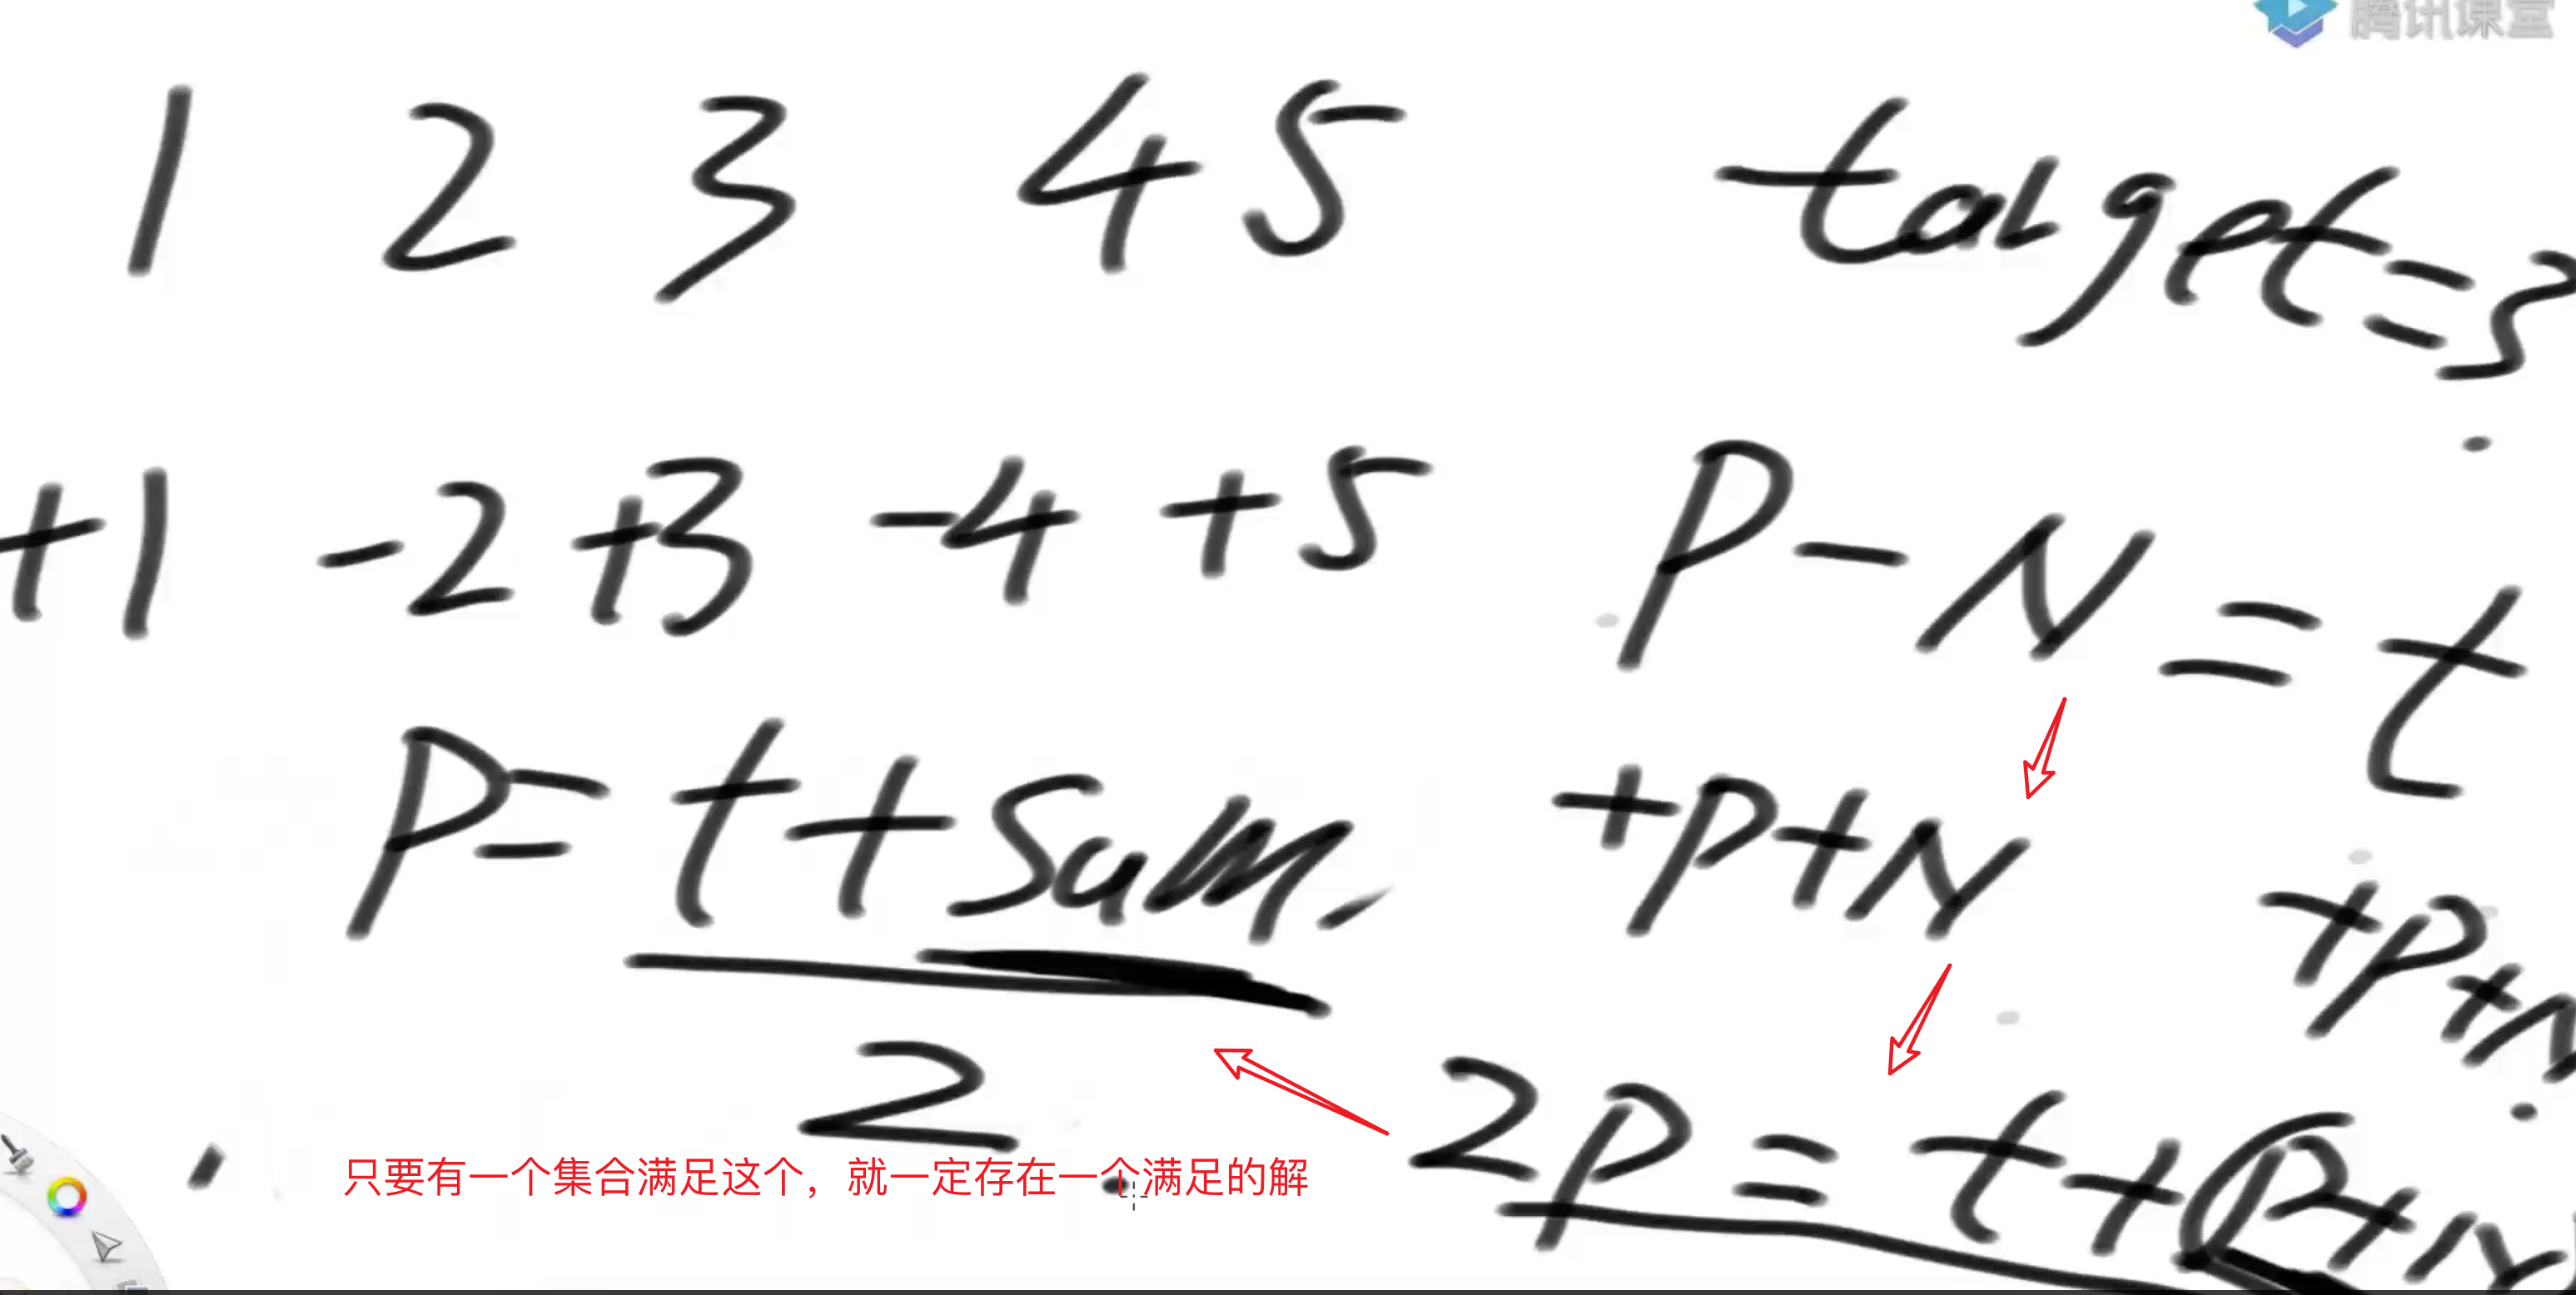 腾讯课堂
1 2 3 4 5 target=3
+1 -2 +3 -4 +5 P-N=t
P=t+sum +P+N +P+N
2
2P=t+(P+N
只要有一个集合满足这个，就一定存在一个满足的解